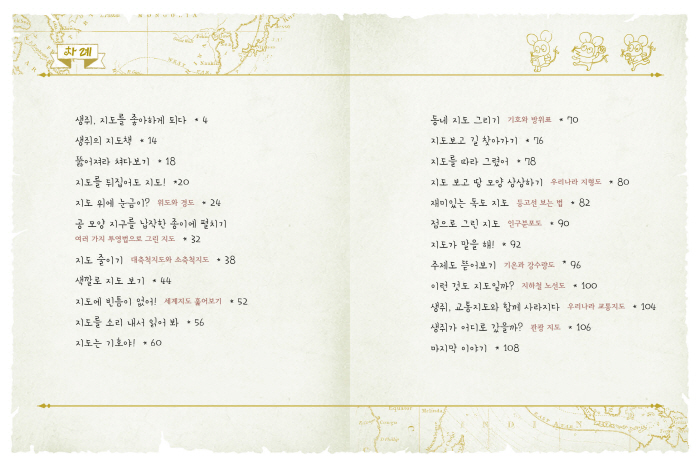 차례
생쥐, 지도를 좋아하게 되다 * 4
생쥐의 지도책 * 14
뚫어져라 쳐다보기 * 18
지도를 뒤집어도 지도! *20
지도 위에 눈금이? 위도와 경도 * 24
공 모양 지구를 납작한 종이에 펼치기
여러 가지 투영법으로 그린 지도 * 32
지도 줄이기 대축척지도와 소축척지도 * 38
색깔로 지도 보기 * 44
지도에 빈틈이 없어! 세계지도 훑어보기 * 52
지도를 소리 내서 읽어 봐 * 56
지도는 기호야! * 60
동네 지도 그리기 기호와 방위표 * 70
지도보고 길 찾아가기 * 76
지도를 따라 그렸어 * 78
지도 보고 땅 모양 상상하기 우리나라 지형도 * 80
재미있는 독도 지도 등고선 보는 법 * 82
점으로 그린 지도 인구분포도 * 90
지도가 말을 해! * 92
주제도 뜯어보기 기온과 강수량도 * 96
이런 것도 지도일까? 지하철 노선도 * 100
생쥐, 교통지도와 함께 사라지다 우리나라 교통지도 * 104
생쥐가 어디로 갔을까? 관광 지도 * 106
마지막 이야기 * 108